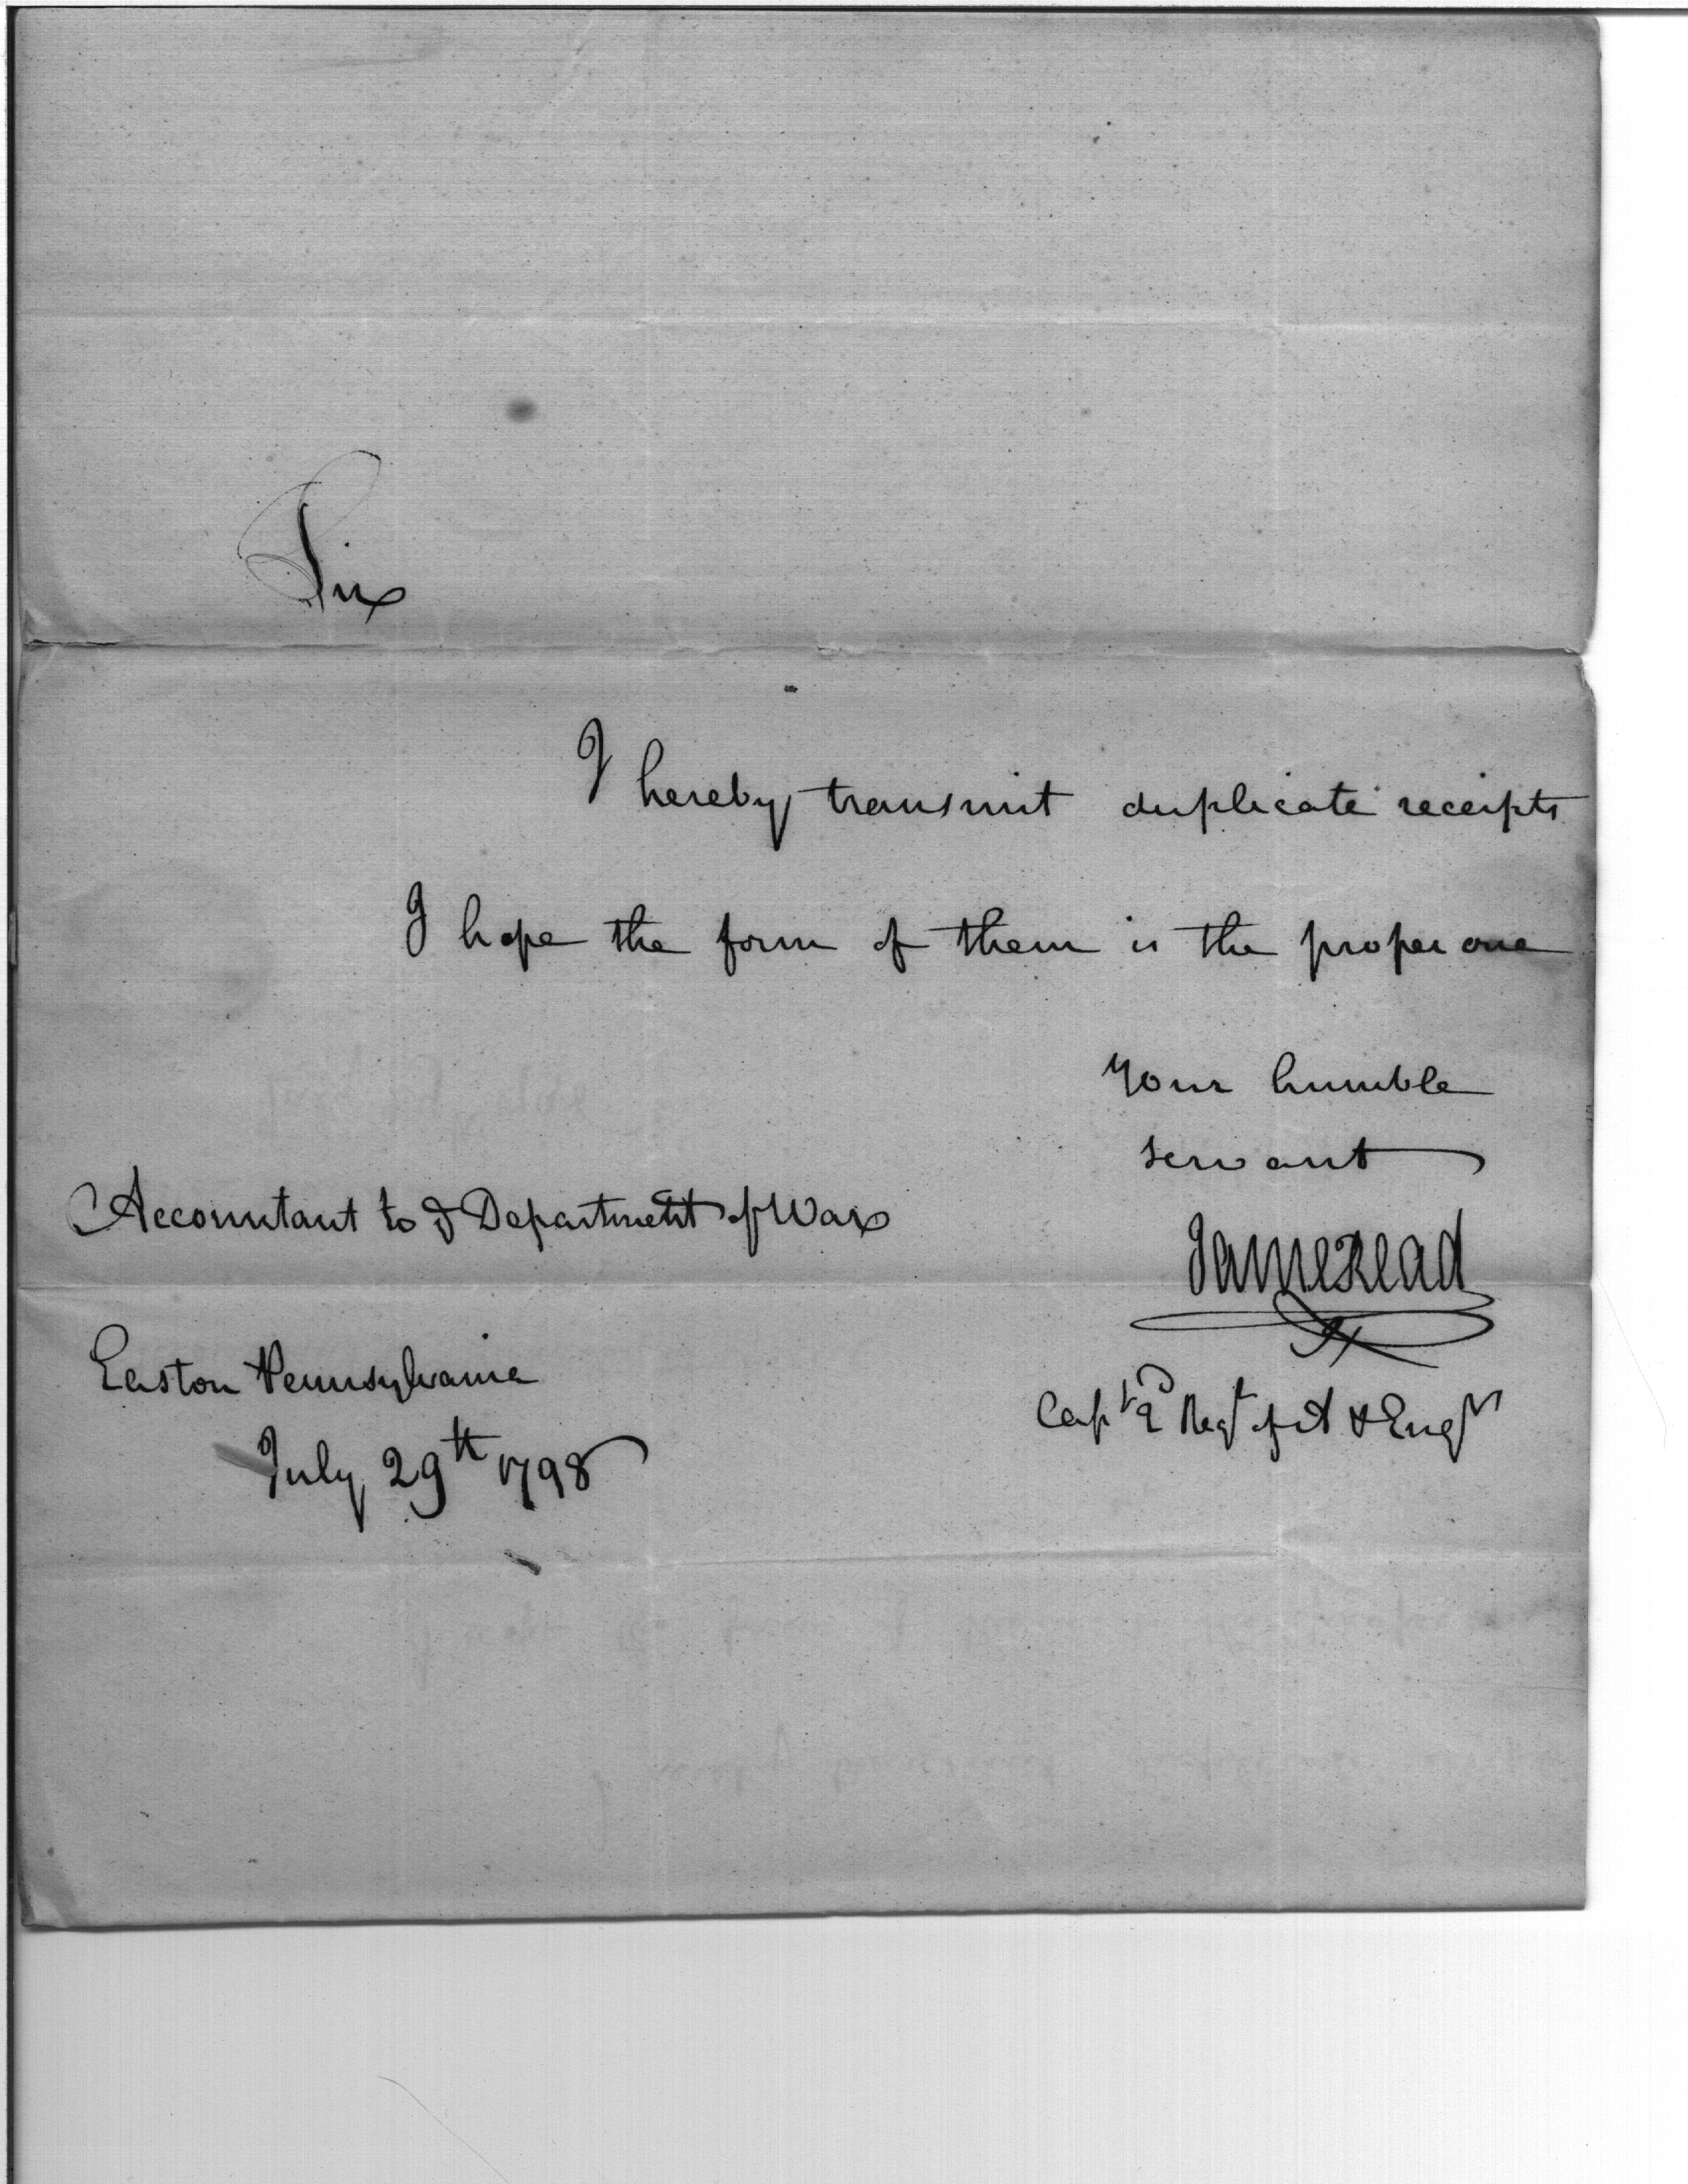 Sir
I hereby transmit duplicate receipts
I hope the form of them is the proper one
Your humble
servant
Accountant to Department of War
James Read
Easton Pennsylvania
July 29th 1798
Capt 2d Regt of A & Engrs